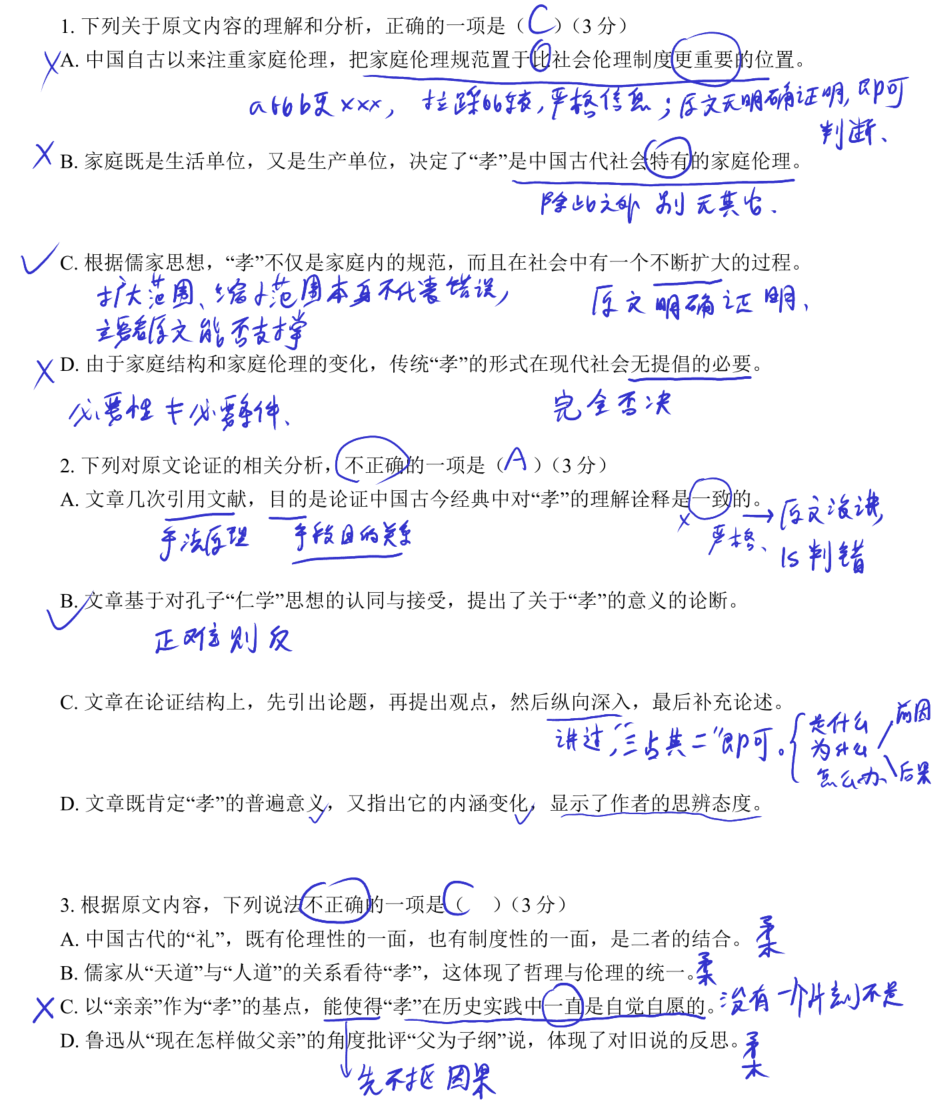 1. 下列关于原文内容的理解和分析，正确的一项是（C）（3 分）
A. 中国自古以来注重家庭伦理，把家庭伦理规范置于比社会伦理制度更重要的位置。
a比b更xxx，拉踩比较，严格信息；原文无明确证明，即可
判断、
B. 家庭既是生活单位，又是生产单位，决定了“孝”是中国古代社会特有的家庭伦理。
除此之外 别无其它.
C. 根据儒家思想，“孝”不仅是家庭内的规范，而且在社会中有一个不断扩大的过程。
扩大范围、缩小范围本身不代表错误，
原文明确证明、
主要看原文能否支撑
D. 由于家庭结构和家庭伦理的变化，传统“孝”的形式在现代社会无提倡的必要。
必要性≠必要条件、
完全否决
2. 下列对原文论证的相关分析，不正确的一项是（A）（3 分）
A. 文章几次引用文献，目的是论证中国古今经典中对“孝”的理解诠释是一致的。
手法原理 手段目的关系
严格、→原文没讲，
15判错
B. 文章基于对孔子“仁学”思想的认同与接受，提出了关于“孝”的意义的论断。
正难则反
C. 文章在论证结构上，先引出论题，再提出观点，然后纵向深入，最后补充论述。
讲过，“三占其二”即可。
是什么
为什么
怎么办
前因
后果
D. 文章既肯定“孝”的普遍意义，又指出它的内涵变化，显示了作者的思辨态度。
3. 根据原文内容，下列说法不正确的一项是（C ）（3 分）
A. 中国古代的“礼”，既有伦理性的一面，也有制度性的一面，是二者的结合。柔
B. 儒家从“天道”与“人道”的关系看待“孝”，这体现了哲理与伦理的统一。柔
C. 以“亲亲”作为“孝”的基点，能使得“孝”在历史实践中一直是自觉自愿的。没有一个片刻不是
D. 鲁迅从“现在怎样做父亲”的角度批评“父为子纲”说，体现了对旧说的反思。柔
先不抠因果